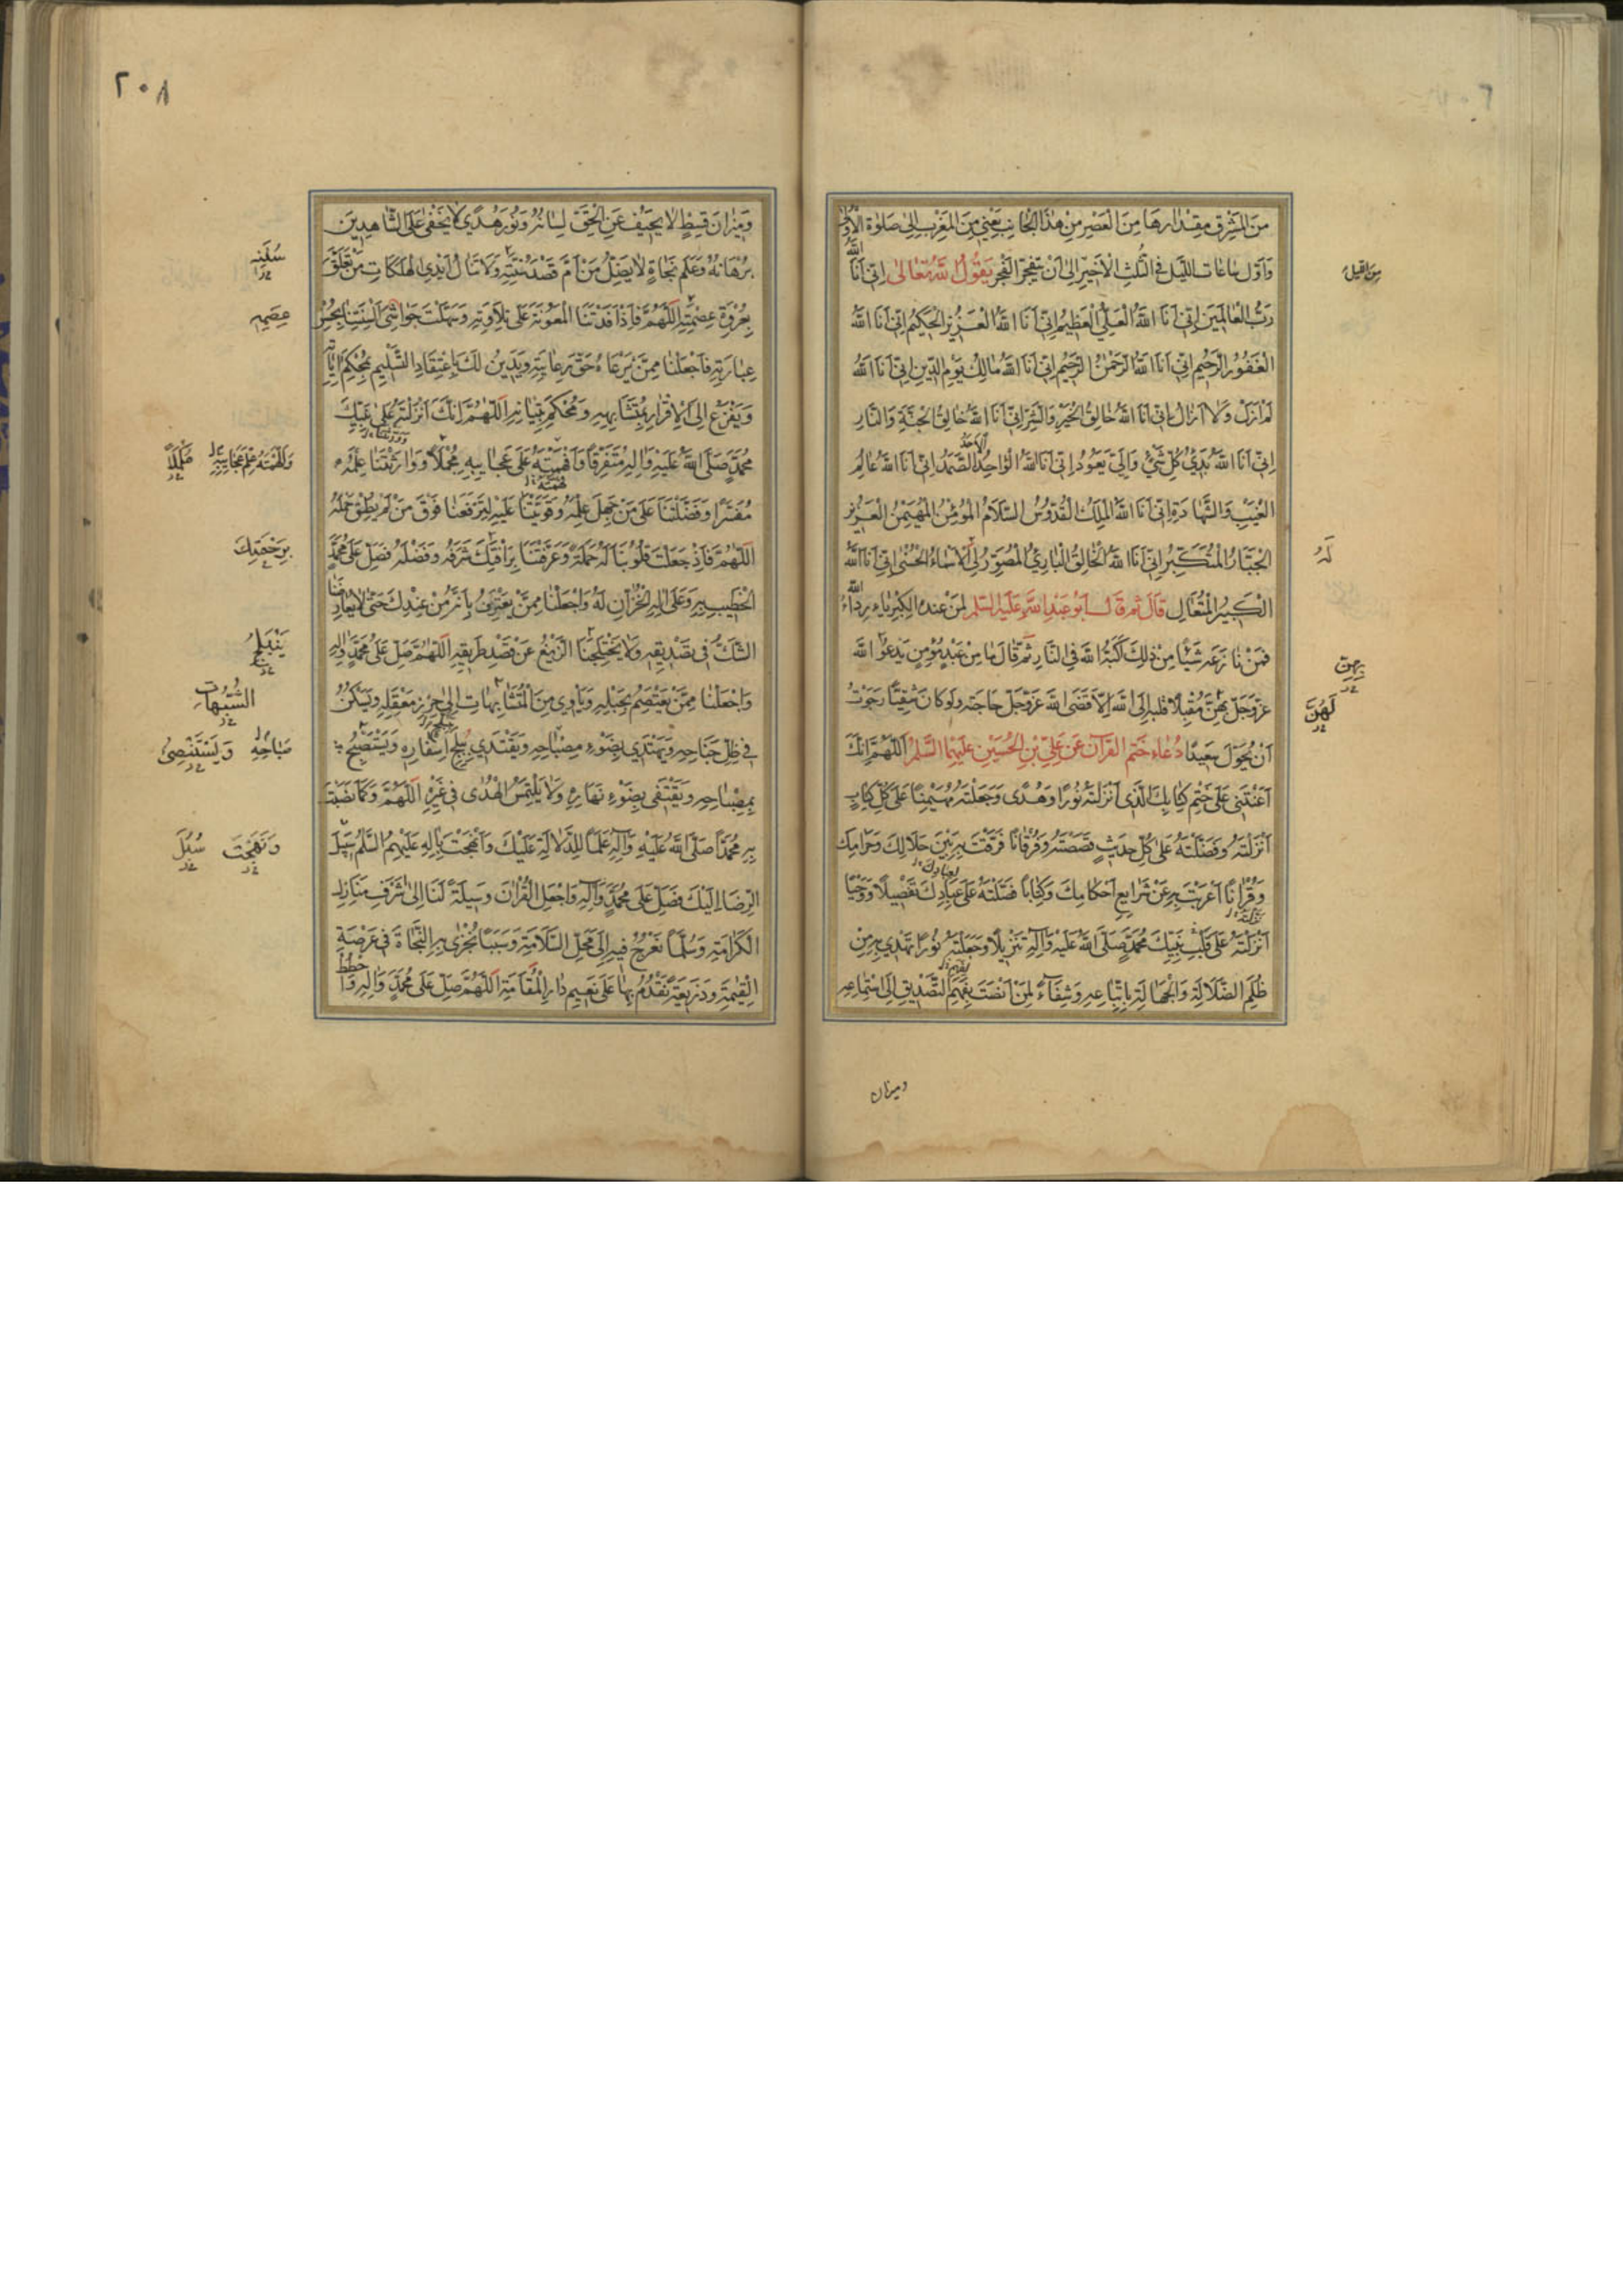 من المشرق مقدارها من العصر من هذا الجانب يعني من المغرب الى صلوة الاولى
واول ساعات الليل في الثلث الاخير الى ان يتفجر الفجر يقول الله تعالى اني انا الله
رب العالمين اني انا الله العلي العظيم اني انا الله العزيز الحكيم اني انا الله
الغفور الرحيم اني انا الله الرحمن الرحيم اني انا الله مالك يوم الدين اني انا الله
لم ازل ولا ازال اني انا الله خالق الخير والشر اني انا الله خالق الجنة والنار
اني انا الله بدئ كل شيء والي يعود اني انا الله الواحد الاحد الصمد اني انا الله عالم
الغيب والشهادة اني انا الله الملك القدوس السلام المؤمن المهيمن العزيز
الجبار المتكبر اني انا الله الخالق البارئ المصور لي الاسماء الحسنى اني انا الله
الكبير المتعال قال ثم قال ابو عبد الله عليه السلم لمن عنده الكبرياء رداء الله
فمن نازعه شيئا من ذلك كبه الله في النار ثم قال ما من عبد مؤمن يدعو الله
عز وجل بهن مقبلا قلبه الى الله الا قضى الله عز وجل حاجته ولو كان شقيا رجوت
ان يحول سعيدا دعاء ختم القرآن عن علي بن الحسين عليهما السلم اللهم انك
اعنتني على ختم كتابك الذي انزلته نورا وهدى وجعلته مهيمنا على كل كتاب
انزلته وفضلته على كل حديث قصصته وفرقانا فرقت به بين حلالك وحرامك
وقرانا اعربت به عن شرايع احكامك وكتابا فصلته على عبادك تفصيلا ووحيا
انزلته على قلب نبيك محمد صلى الله عليه وآله تنزيلا وجعلته نورا نهتدي به من
ظلم الضلالة والجهالة باتباعه وشفاء لمن انصت بفهم التصديق الى استماعه
وميزان
له
بهن
لهن
٢٠٨
وميزان قسط لا يحيف عن الحق لسانه ونور هدى لا يخفى على الشاهدين
برهانه وعلم نجاة لا يضل من ام قصد سنته ولا تنال ايدي الهلكات من تعلق
بعروة عصمته اللهم فاذ افدتنا المعونة على تلاوته وسهلت حواشي السنتنا بحسن
عبارته فاجعلنا ممن يرعاه حق رعايته ويدين لك باعتقاد التسليم لمحكم اياته
ويفزع الى الاقرار بمتشابهه ومحكم بيناته اللهم انك انزلته على نبيك
محمد صلى الله عليه واله متفرقا وافهمته على عجايبه مجملا وورثتنا علمه
مفسرا وفضلتنا على من جهل علمه وقويتنا عليه لترفعنا فوق من لم يطق حمله
اللهم فاذ جعلت قلوبنا له حملة وعرفتنا برافتك شرفه وفضله فصل على محمد
الخطيب به وعلى اله الخزان له واجعلنا ممن يعترف بانه من عندك حتى لا يعارضنا
الشك في تصديقه ولا يختلجنا الزيغ عن قصد طريقه اللهم صل على محمد واله
واجعلنا ممن يعتصم بحبله وياوي من المتشابهات الى حرز معقله ويسكن
في ظل جناحه ويهتدي بضوء مصباحه ويقتدي بتبلج اسفاره ويستصبح
بمصباحه ويقتفي بضوء نهاره ولا يلتمس الهدى في غيره اللهم وكما نصبت
به محمدا صلى الله عليه وآله علما للدلالة عليك وانهجت بآله عليهم السلم سبيل
الرضا اليك فصل على محمد وآله واجعل القران وسيلة لنا الى شرف منازل
الكرامة وسلما نعرج فيه الى محل السلامة وسببا نجزى به النجاة في عرصة
القيمة وذريعة نقدم بها على نعيم دار المقامة اللهم صل على محمد واله واحطط
سنته
عصمه
برحمتك
الشبهات
صباحه ويستضئ
ونهجت سبل